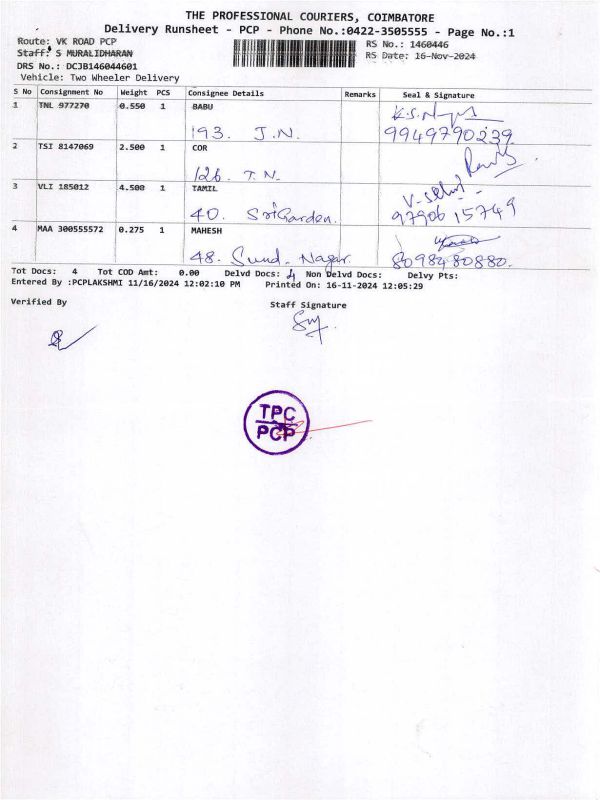 THE PROFESSIONAL COURIERS, COIMBATORE
Delivery Runsheet - PCP - Phone No.:0422-3505555 - Page No.:1
Route: VK ROAD PCP RS No.: 1460446
Staff: S MURALIDHARAN RS Date: 16-Nov-2024
DRS No.: DCJB146044601
Vehicle: Two Wheeler Delivery
S No Consignment No Weight PCS Consignee Details Remarks Seal & Signature
1 TNL 977270 0.550 1 BABU
193. J.N. 9949790239
2 TSI 8147069 2.500 1 COR
126. T.N.
3 VLI 185012 4.500 1 TAMIL
40. Sri Garden. 9790615749
4 MAA 300555572 0.275 1 MAHESH
48. Sund. Nagar. 8098480880.
Tot Docs: 4 Tot COD Amt: 0.00 Delvd Docs: 4 Non Delvd Docs: Delvy Pts:
Entered By :PCPLAKSHMI 11/16/2024 12:02:10 PM Printed On: 16-11-2024 12:05:29
Verified By Staff Signature
TPC
PCP